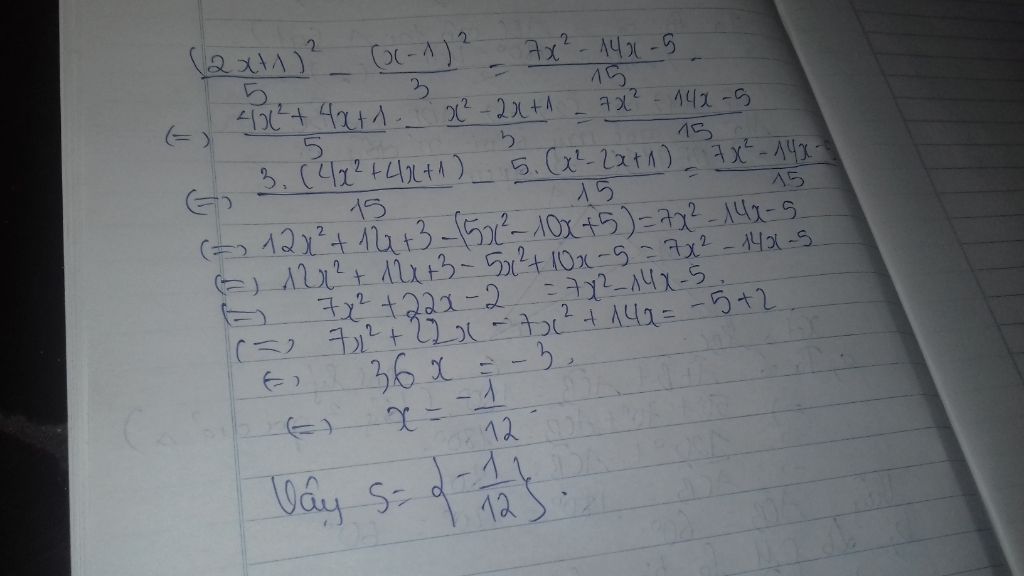 (2x+1)²/5 - (x-1)²/3 = 7x² - 14x - 5/15
(=) 4x² + 4x + 1/5 - x² - 2x + 1/3 = 7x² - 14x - 5/15
(=) 3.(4x² + 4x + 1)/15 - 5.(x² - 2x + 1)/15 = 7x² - 14x -/15
(=) 12x² + 12x + 3 - (5x² - 10x + 5) = 7x² - 14x - 5
(=) 12x² + 12x + 3 - 5x² + 10x - 5 = 7x² - 14x - 5
(=) 7x² + 22x - 2 = 7x² - 14x - 5.
(=) 7x² + 22x - 7x² + 14x = -5 + 2
(=) 36x = -3.
(=) x = -1/12.
Vậy S = {-1/12}.